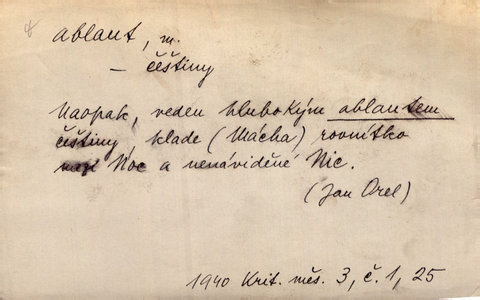 ablaut, m.
– češtiny
Naopak, veden hlubokým ablautem
češtiny, klade (Mácha) rovnítko
mezi Noc a nenáviděné Nic.
(Jan Orel)
1940 Krit. měs. 3, č. 1, 25